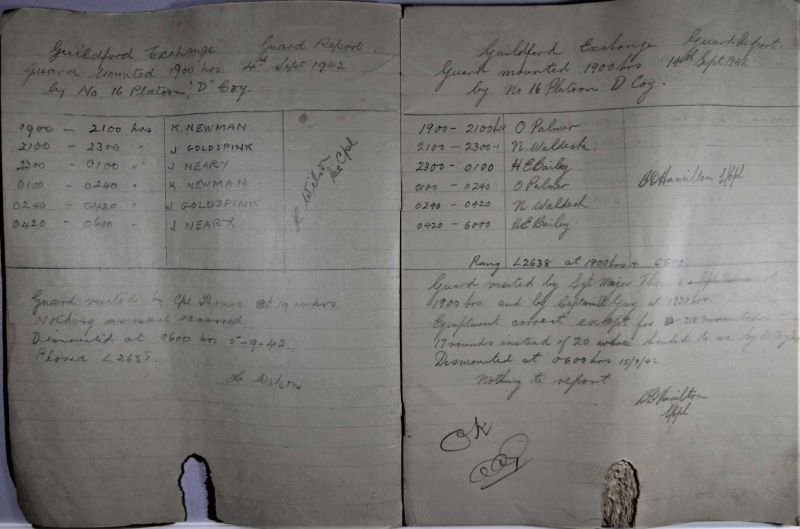 Guildford Exchange Guard Report.
Guard mounted 1900 hrs. 4th Sept 1942
by No. 16 Platoon, "D" Coy.
1900 - 2100 hrs K. NEWMAN
2100 - 2300 " J GOLDSPINK
2300 - 0100 " J NEARY
0100 - 0240 " K. NEWMAN
0240 - 0420 " J. GOLDSPINK
0420 - 0600 " J NEARY.
Wilson
Cpl
Guard visited by Cpl Thomas at 1900 hrs.
Nothing unusual occurred
Dismounted at 0600 hrs 5-9-42.
Phoned L2638.
Wilson
Guildford Exchange Guard Report.
Guard mounted 1900 hrs. 14th Sept 1942
by No 16 Platoon D Coy.
1900 - 2100 hrs O Palmer
2100 - 2300 " N. Waldeck.
2300 - 0100 H E Bailey
0100 - 0240 O Palmer
0240 - 0420 N. Waldeck
0420 - 6000 H E Bailey
Hamilton
Rang L2638 at 1900 hrs +
Guard visited by Sgt Major
1900 hrs and by Captain Guy at 1930 hrs.
Equiptment correct except for
17 rounds instead of 20 handed to me by
Dismounted at 0600 hrs 15/9/42
Nothing to report
Hamilton
OK